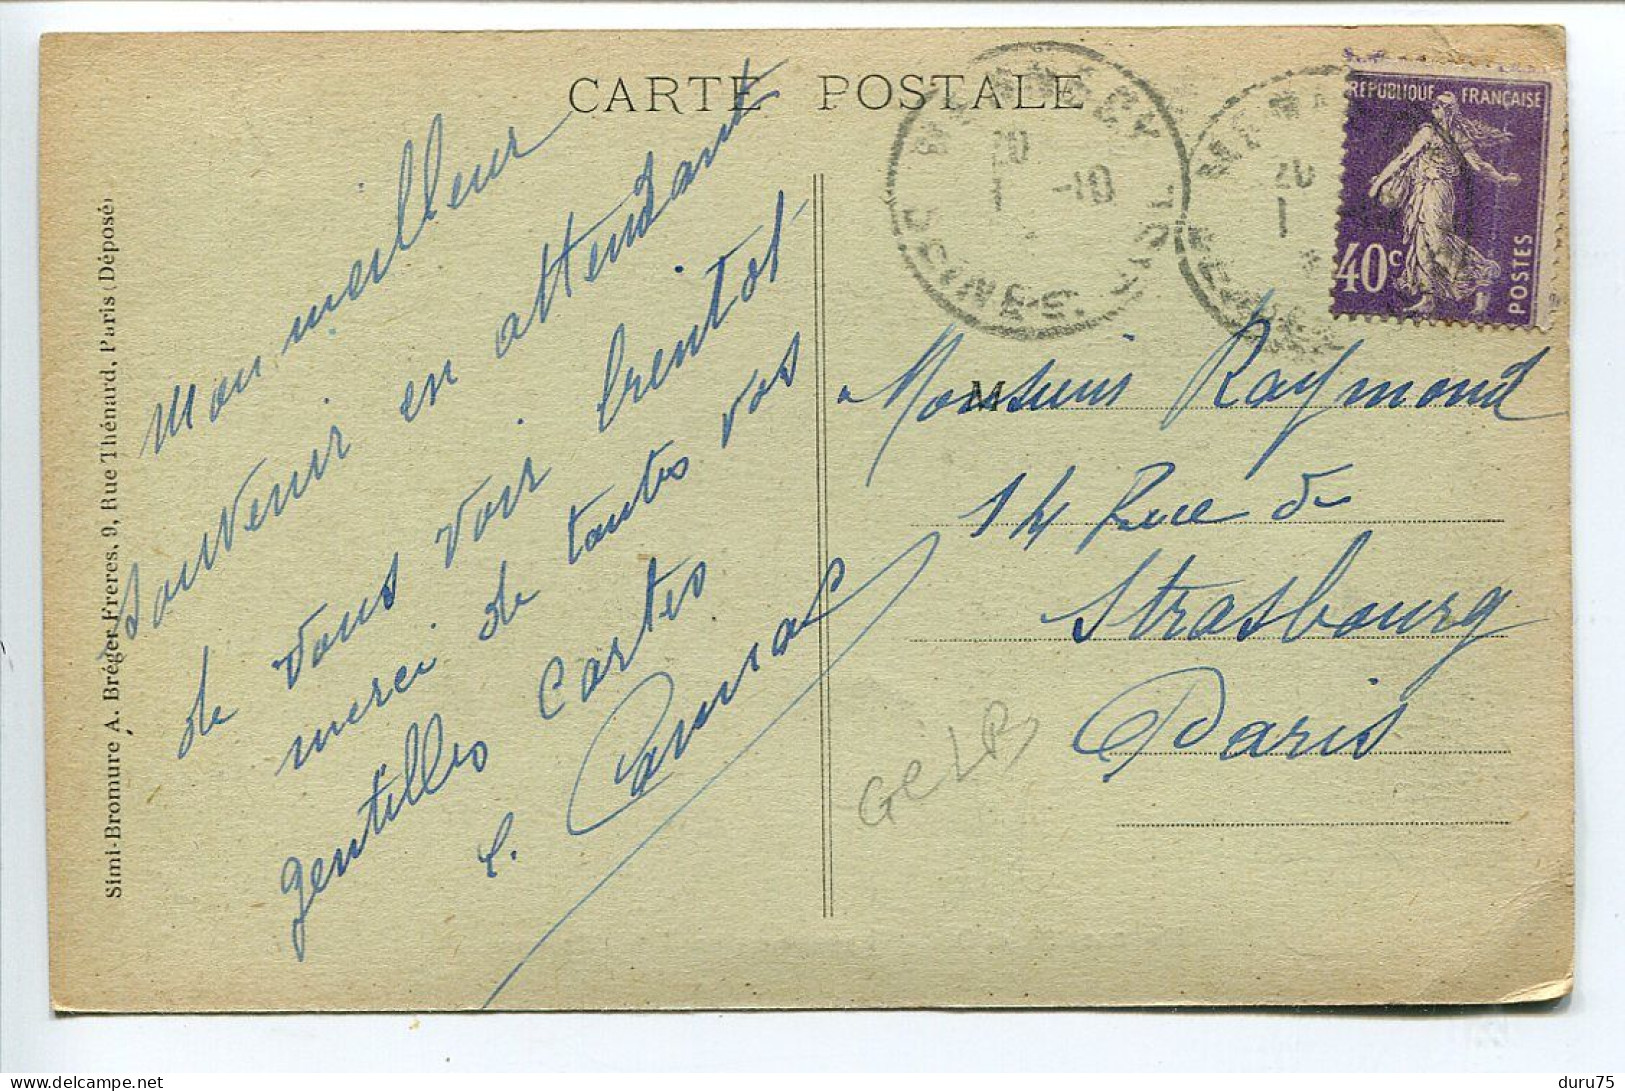 CARTE POSTALE
Mon meilleur
souvenir en attendant
de vous voir bientot
merci de toutes vos
gentilles cartes
Simi-Bromure A. Bréger Freres, 9, Rue Thénard, Paris (Déposé)
MENNECY
SEINE-&-
20
-10
1
REPUBLIQUE FRANÇAISE
40c
POSTES
M
Monsieur Raymond
14 Rue de
Strasbourg
Paris
delcampe.net
duru75